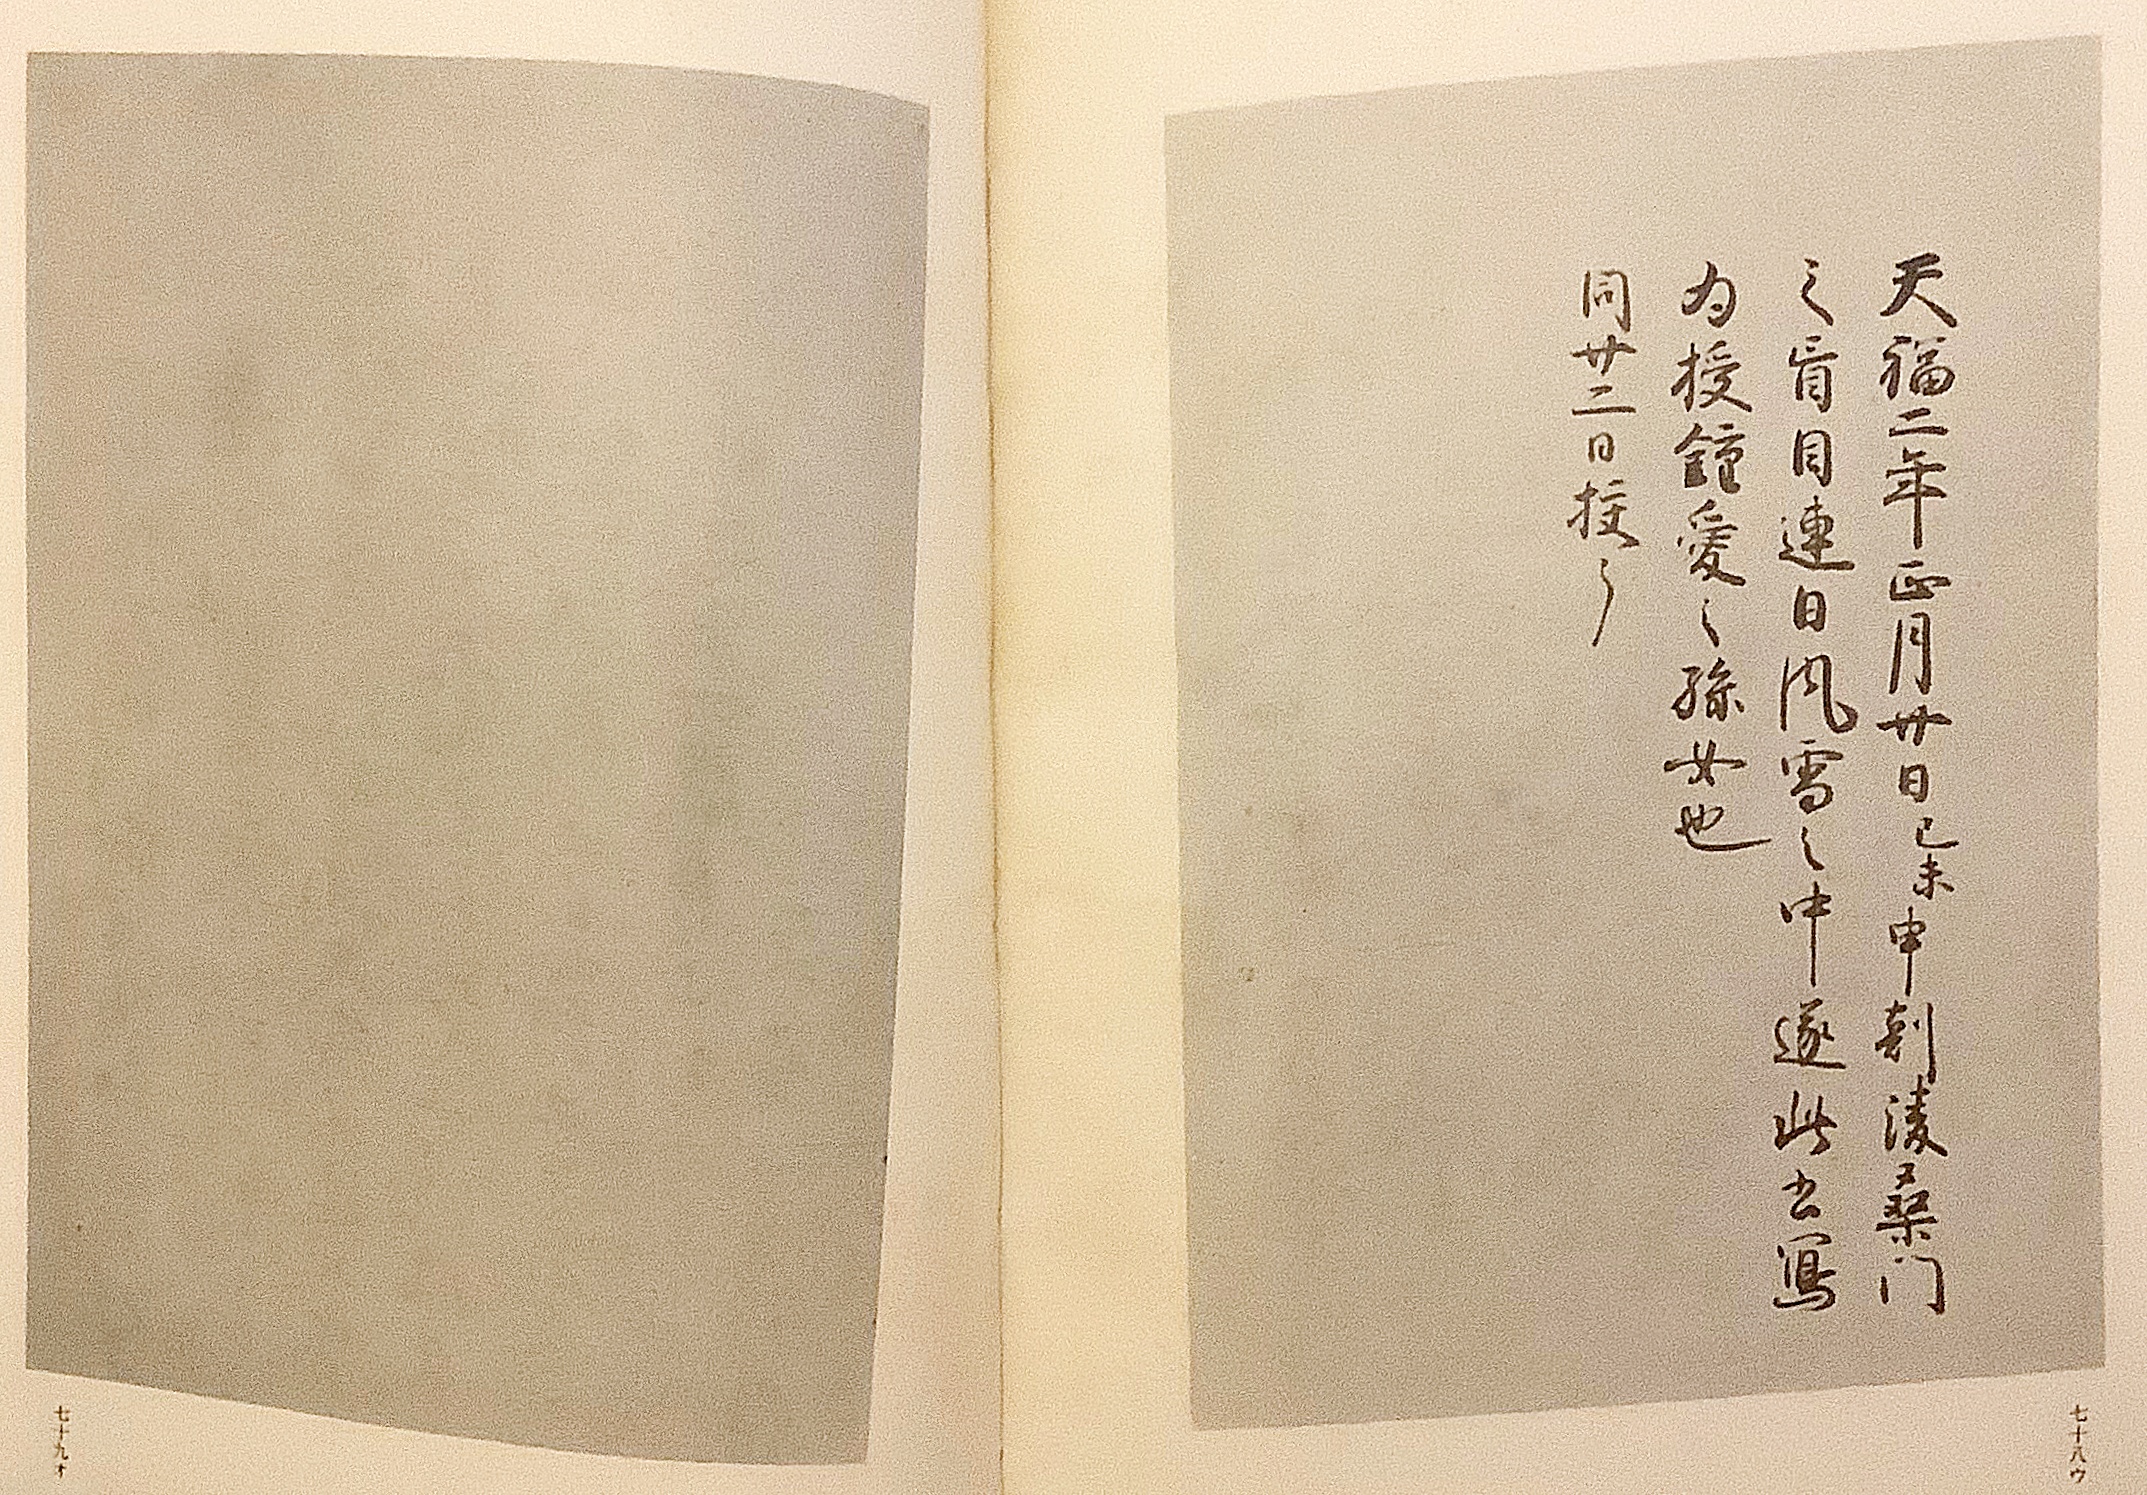 天福二年正月廿日己未申刻凌桑門
之盲目連日風雪之中遂此書寫
為授鐘愛之孫女也
同廿二日校了
七十八ウ
七十九オ